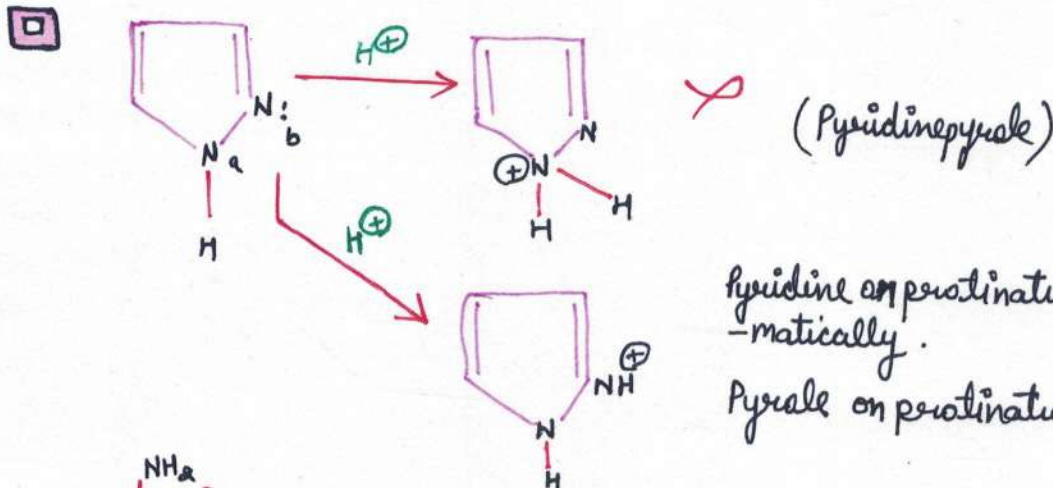 H⊕
N:
b
N a
H
N
⊕N
H
H
(Pyridinepyrale)
H⊕
NH⊕
N
H
Pyridine on protinatu
-matically.
Pyrale on protinatu
NH2